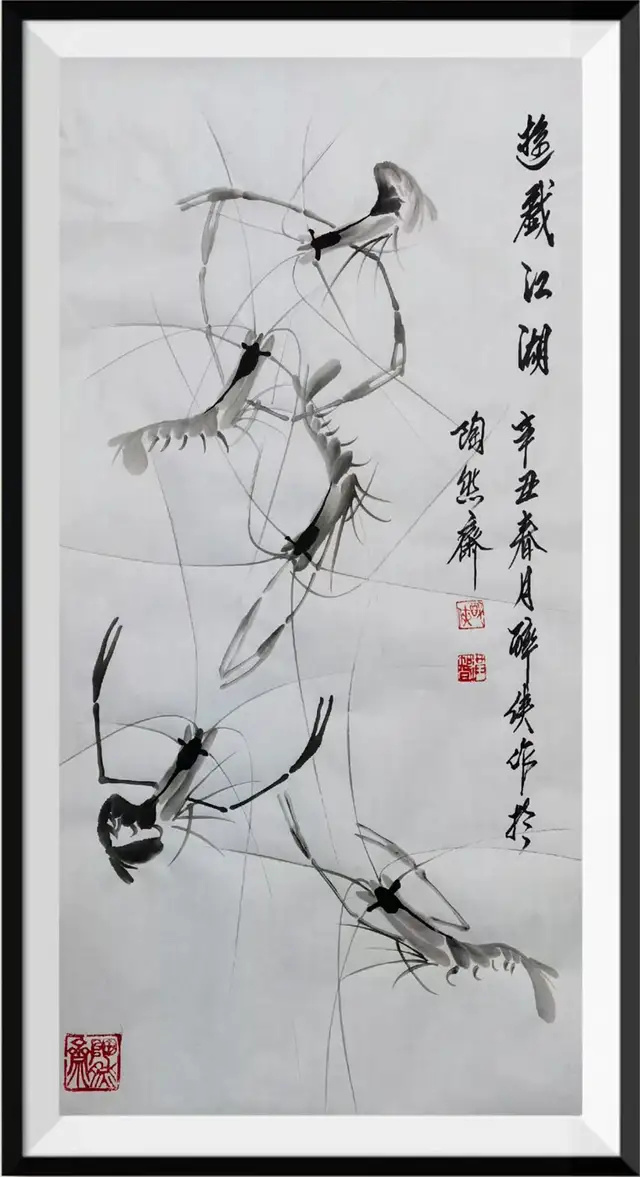 遊戲江湖
辛丑春月醉侠作於
陶然齋
陶然齋